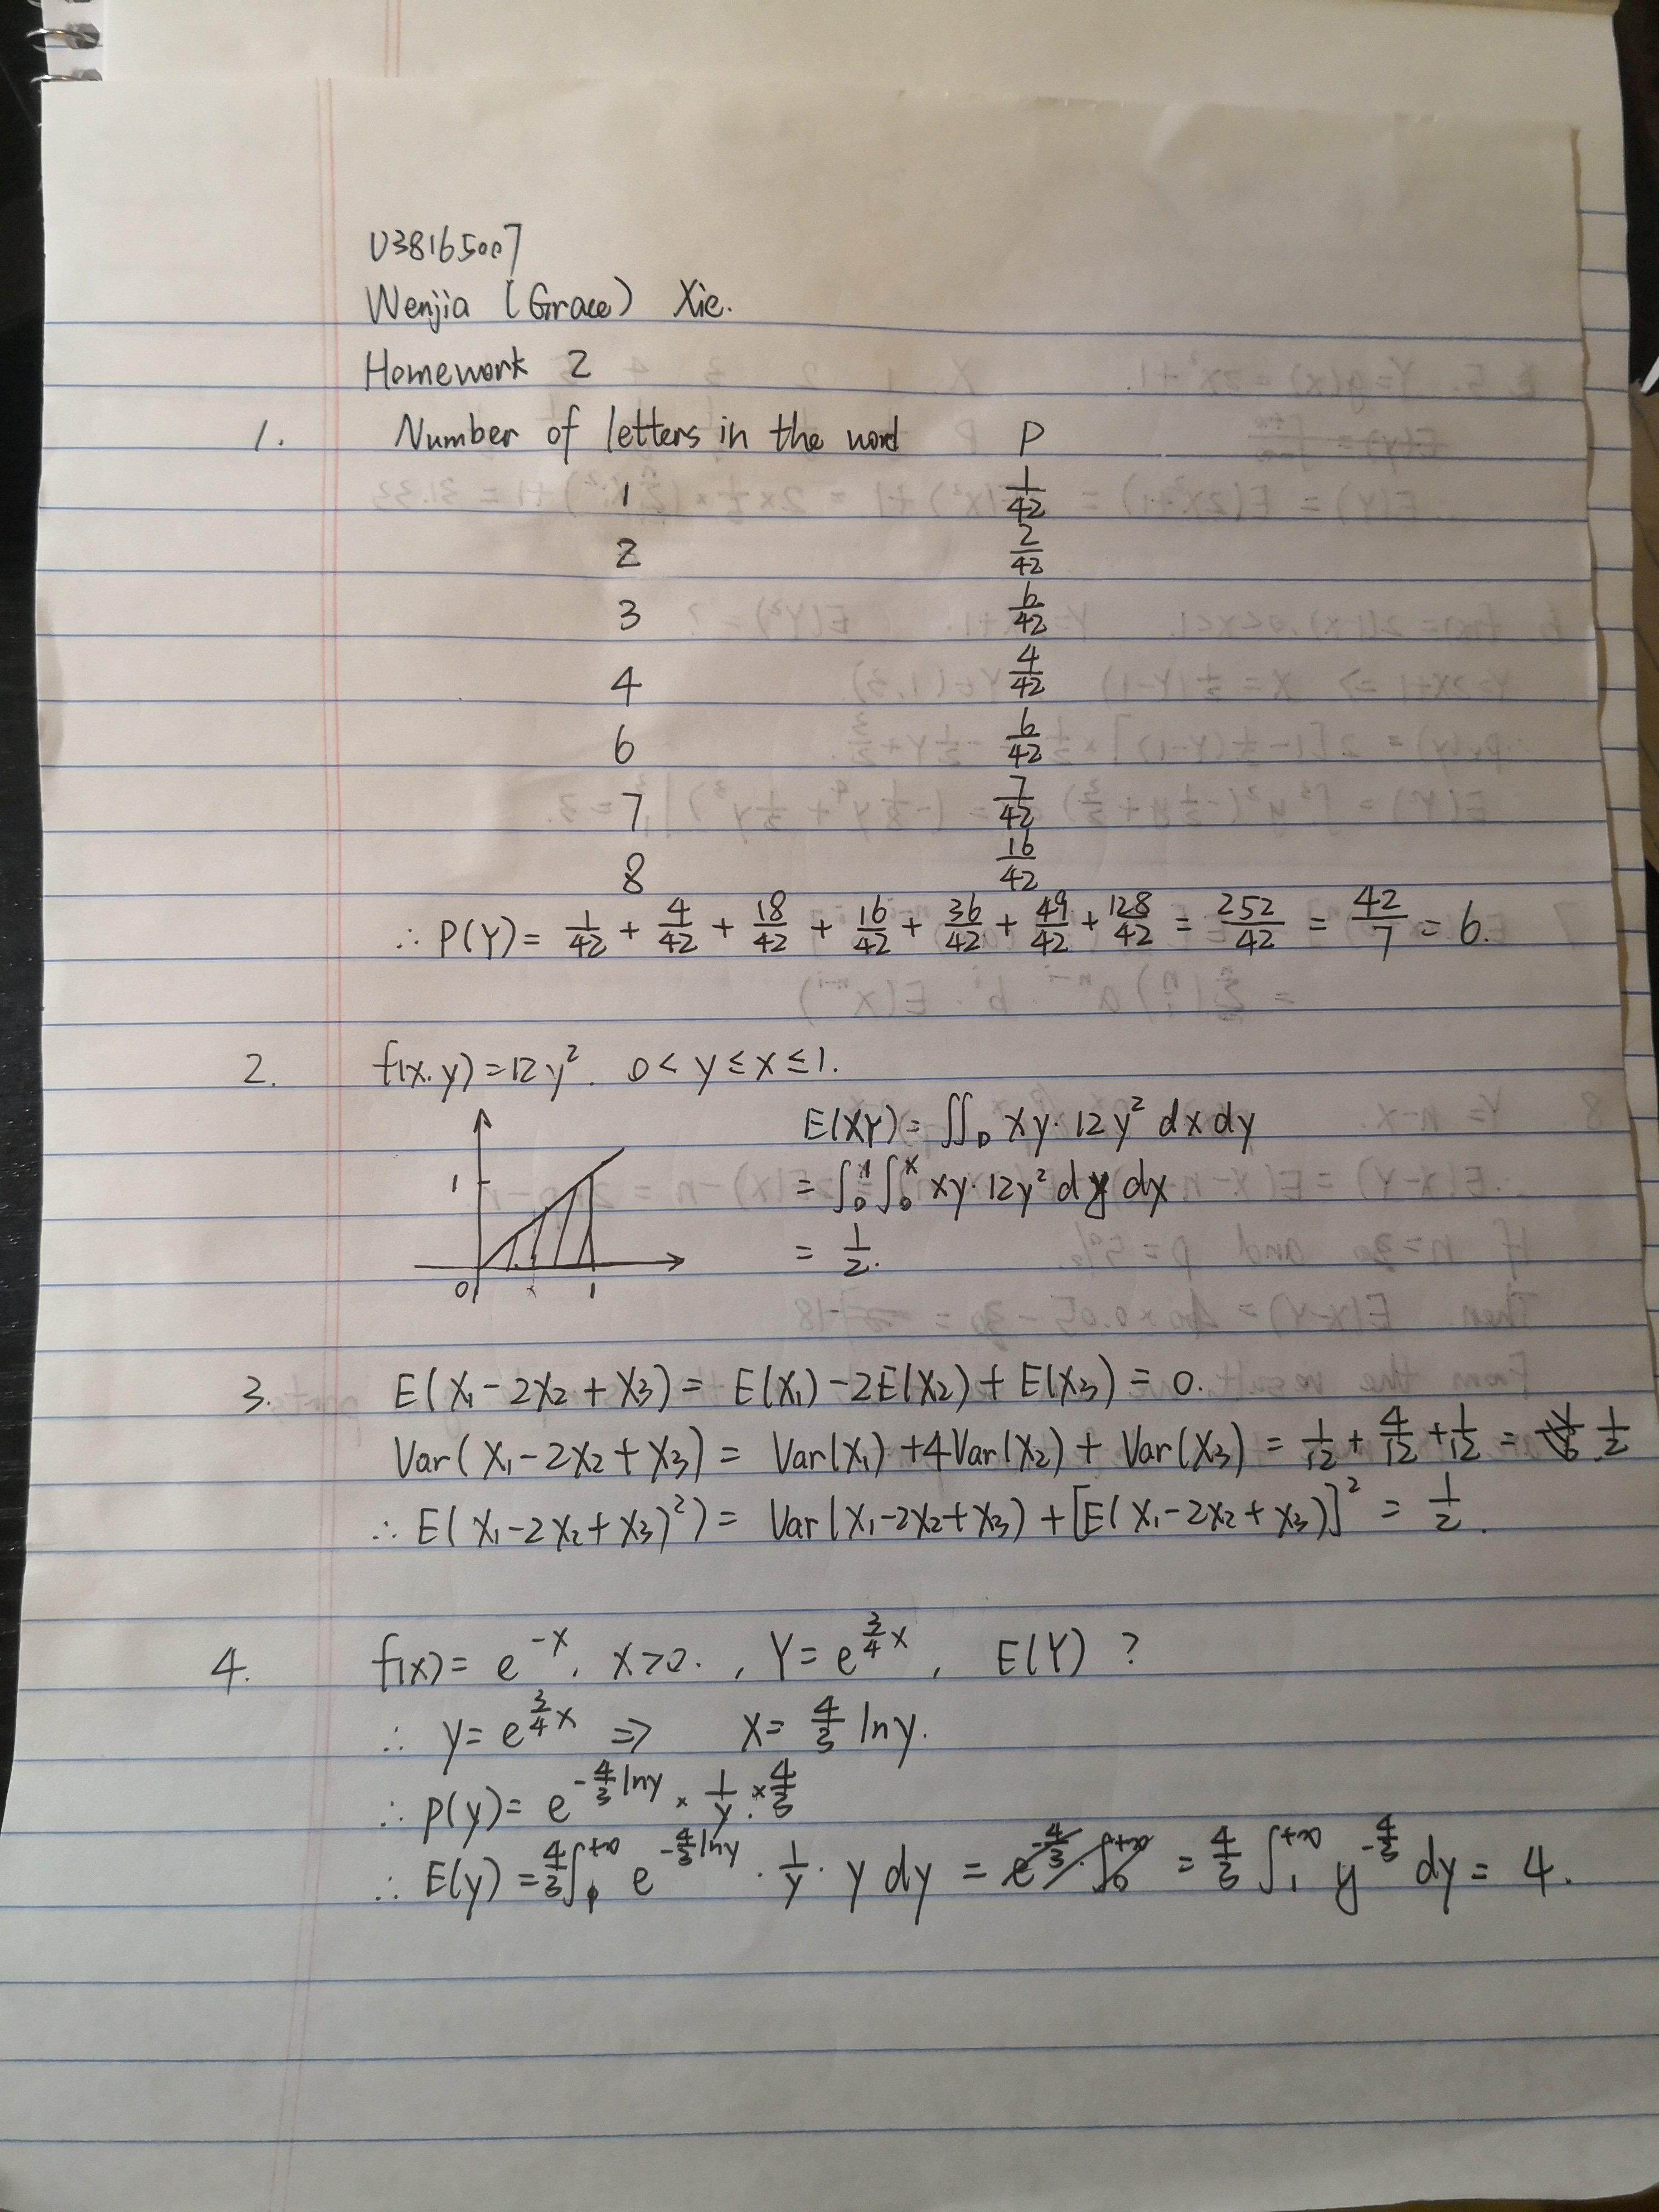 U38165007
Wenjia (Grace) Xie.
Homework 2
1. Number of letters in the word P
1 1/42
2 2/42
3 6/42
4 4/42
6 6/42
7 7/42
8 16/42
∴ P(Y) = 1/42 + 4/42 + 18/42 + 16/42 + 36/42 + 49/42 + 128/42 = 252/42 = 42/7 = 6.
2. f(x.y) = 12y². 0 < y ≤ x ≤ 1.
E(XY) = ∬_D xy·12y² dx dy
1 = ∫₀¹∫₀ˣ xy·12y² dy dx
= 1/2.
0 1
3. E(X₁ - 2X₂ + X₃) = E(X₁) - 2E(X₂) + E(X₃) = 0.
Var(X₁ - 2X₂ + X₃) = Var(X₁) + 4Var(X₂) + Var(X₃) = 1/12 + 4/12 + 1/12 = 1/2
∴ E(X₁ - 2X₂ + X₃)²) = Var(X₁ - 2X₂ + X₃) + [E(X₁ - 2X₂ + X₃)]² = 1/2.
4. f(x) = e^(-x). x > 0. , Y = e^(3/4 x), E(Y) ?
∴ y = e^(3/4 x) ⇒ x = 4/3 ln y.
∴ p(y) = e^(-4/3 ln y) × 1/y × 4/3
∴ E(y) = 4/3 ∫₁^(+∞) e^(-4/3 ln y) · 1/y · y dy = 4/3 ∫₁^(+∞) y^(-4/3) dy = 4.